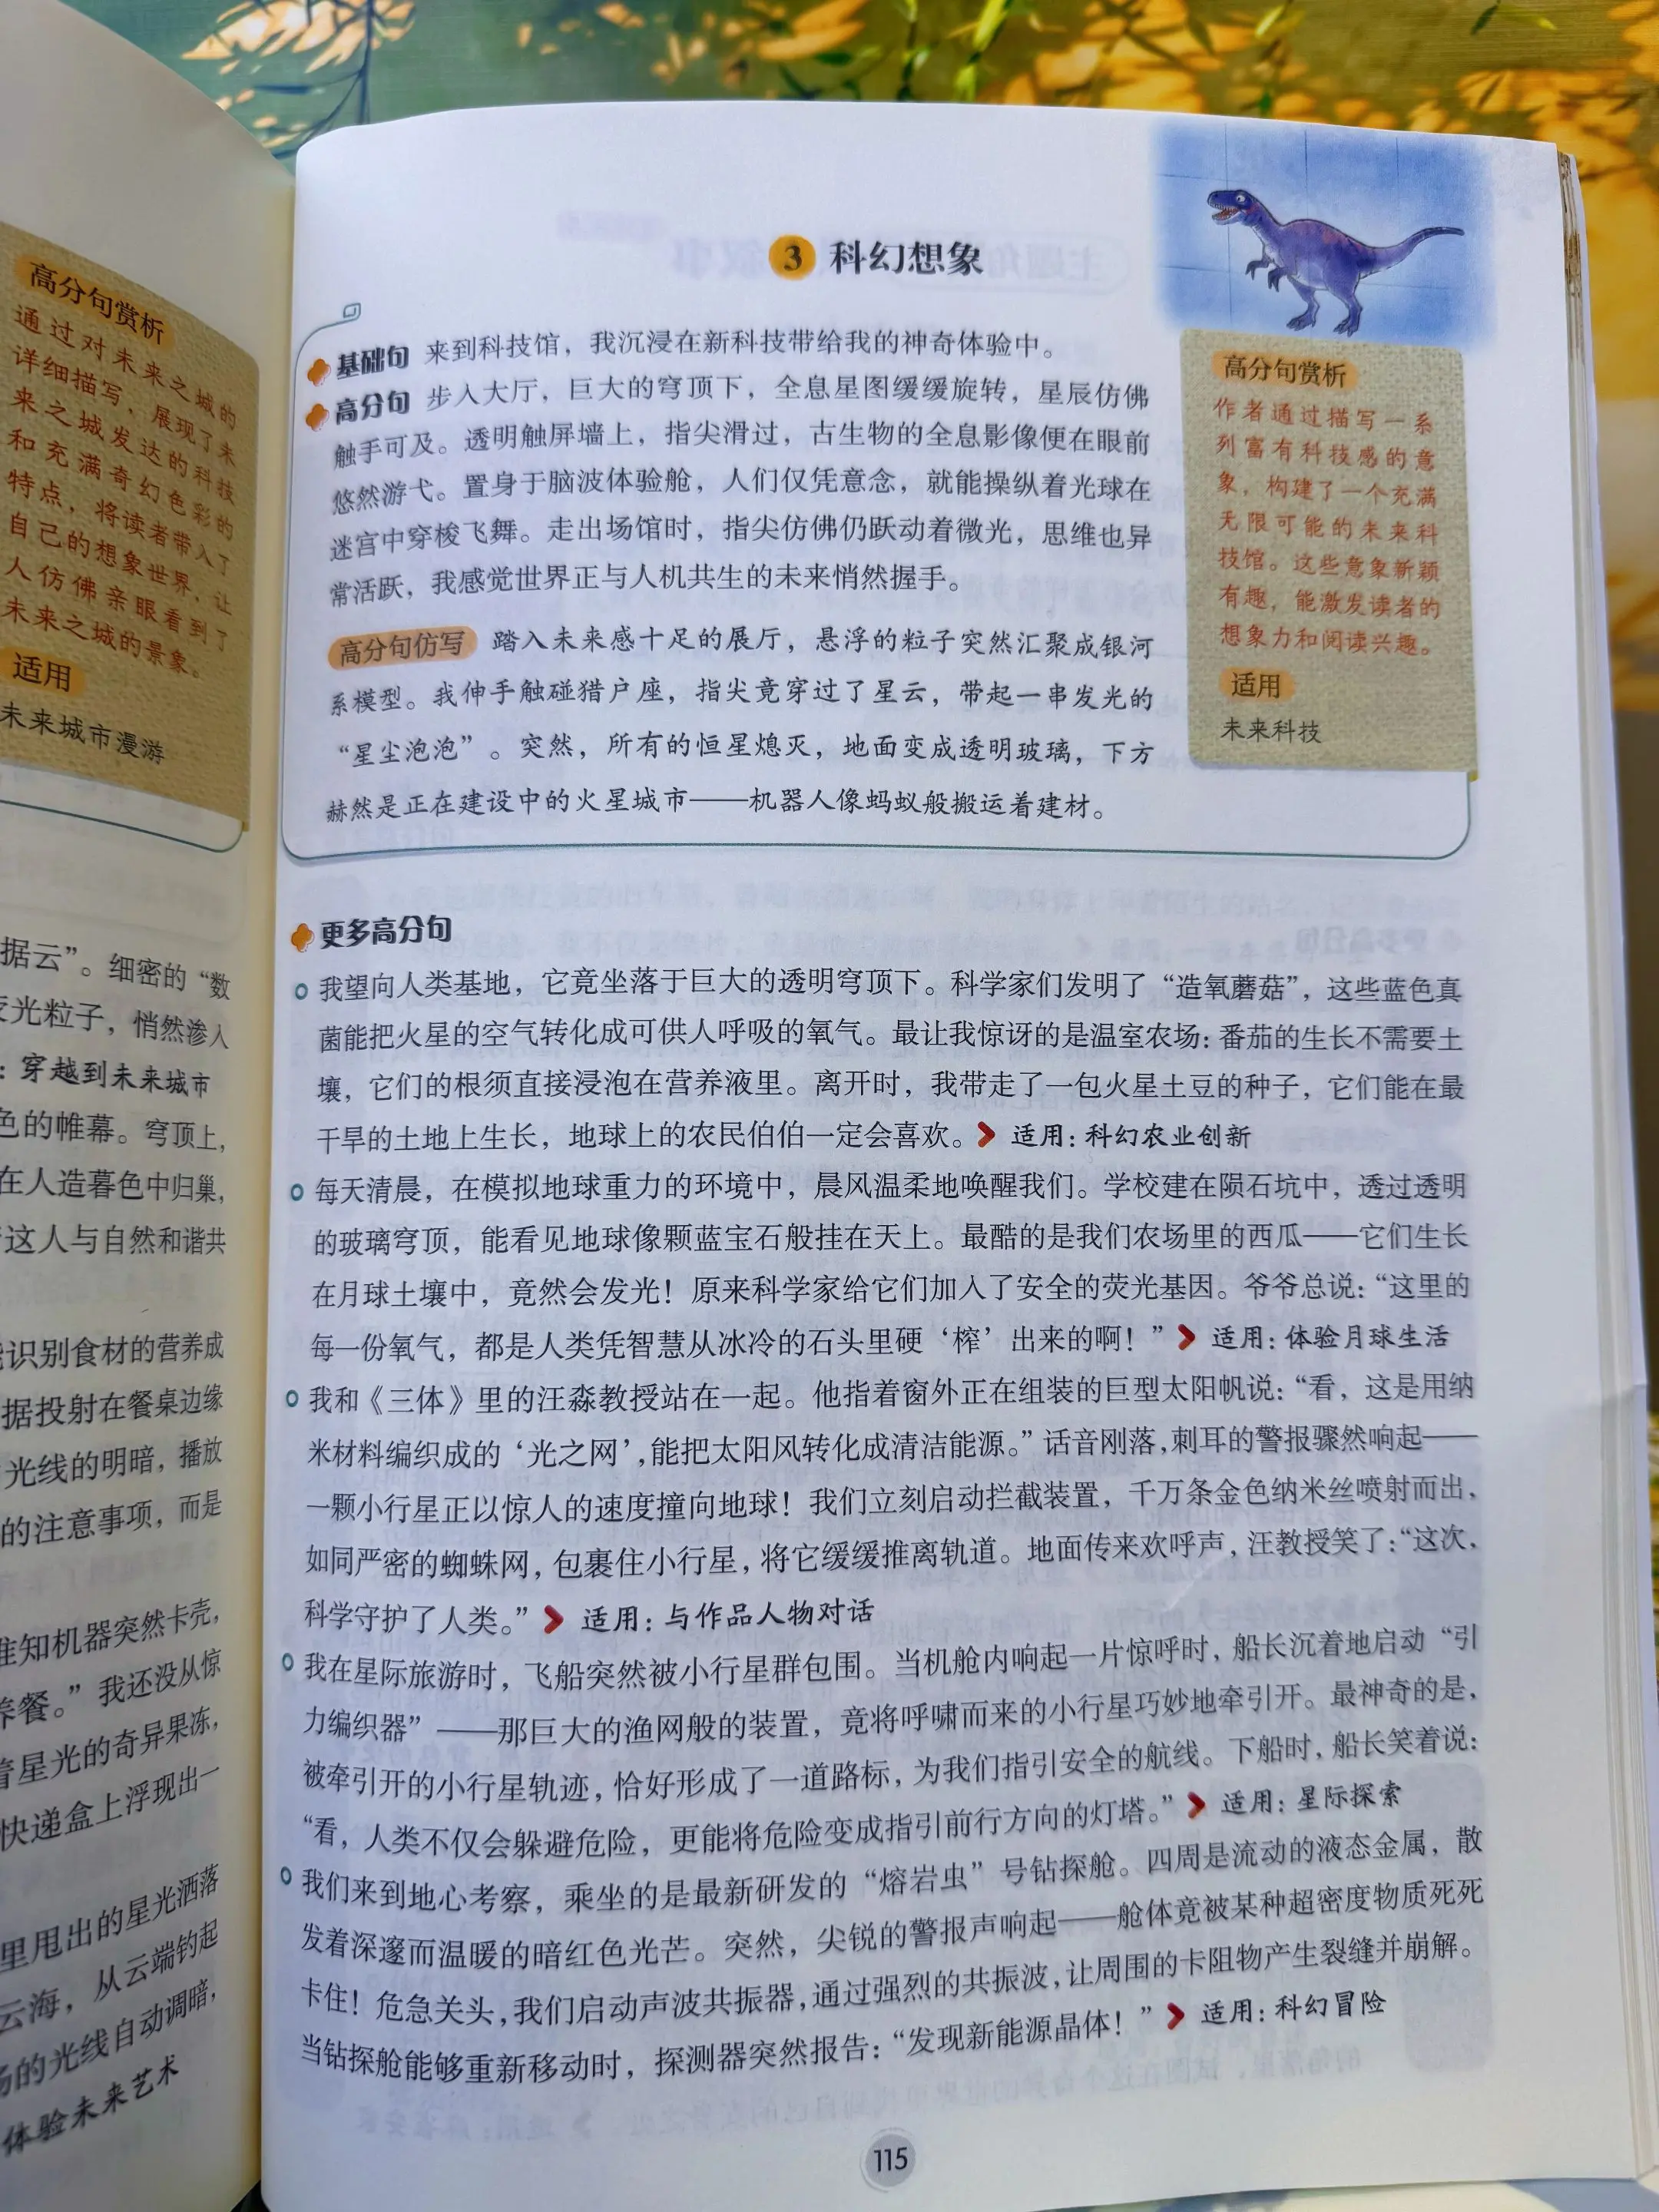 高分句赏析
通过对未来之城的
详细描写，展现了未
来之城发达的科技
和充满奇幻色彩的
特点，将读者带入了
自己的想象世界，让
人仿佛亲眼看到了
未来之城的景象。
适用
未来城市漫游
据云”。细密的“数
光粒子，悄然渗入
：穿越到未来城市
色的帷幕。穹顶上，
在人造暮色中归巢，
这人与自然和谐共
识别食材的营养成
据投射在餐桌边缘
光线的明暗，播放
的注意事项，而是
知机器突然卡壳，
养餐。”我还没从惊
着星光的奇异果冻，
快递盒上浮现出一
里甩出的星光洒落
云海，从云端钓起
的光线自动调暗，
体验未来艺术
3 科幻想象
基础句 来到科技馆，我沉浸在新科技带给我的神奇体验中。
高分句 步入大厅，巨大的穹顶下，全息星图缓缓旋转，星辰仿佛
触手可及。透明触屏墙上，指尖滑过，古生物的全息影像便在眼前
悠然游弋。置身于脑波体验舱，人们仅凭意念，就能操纵着光球在
迷宫中穿梭飞舞。走出场馆时，指尖仿佛仍跃动着微光，思维也异
常活跃，我感觉世界正与人机共生的未来悄然握手。
高分句仿写 踏入未来感十足的展厅，悬浮的粒子突然汇聚成银河
系模型。我伸手触碰猎户座，指尖竟穿过了星云，带起一串发光的
“星尘泡泡”。突然，所有的恒星熄灭，地面变成透明玻璃，下方
赫然是正在建设中的火星城市——机器人像蚂蚁般搬运着建材。
高分句赏析
作者通过描写一系
列富有科技感的意
象，构建了一个充满
无限可能的未来科
技馆。这些意象新颖
有趣，能激发读者的
想象力和阅读兴趣。
适用
未来科技
更多高分句
我望向人类基地，它竟坐落于巨大的透明穹顶下。科学家们发明了“造氧蘑菇”，这些蓝色真
菌能把火星的空气转化成可供人呼吸的氧气。最让我惊讶的是温室农场：番茄的生长不需要土
壤，它们的根须直接浸泡在营养液里。离开时，我带走了一包火星土豆的种子，它们能在最
干旱的土地上生长，地球上的农民伯伯一定会喜欢。 适用：科幻农业创新
每天清晨，在模拟地球重力的环境中，晨风温柔地唤醒我们。学校建在陨石坑中，透过透明
的玻璃穹顶，能看见地球像颗蓝宝石般挂在天上。最酷的是我们农场里的西瓜——它们生长
在月球土壤中，竟然会发光！原来科学家给它们加入了安全的荧光基因。爷爷总说：“这里的
每一份氧气，都是人类凭智慧从冰冷的石头里硬‘榨’出来的啊！” 适用：体验月球生活
我和《三体》里的汪淼教授站在一起。他指着窗外正在组装的巨型太阳帆说：“看，这是用纳
米材料编织成的‘光之网’，能把太阳风转化成清洁能源。”话音刚落，刺耳的警报骤然响起——
一颗小行星正以惊人的速度撞向地球！我们立刻启动拦截装置，千万条金色纳米丝喷射而出，
如同严密的蜘蛛网，包裹住小行星，将它缓缓推离轨道。地面传来欢呼声，汪教授笑了：“这次，
科学守护了人类。” 适用：与作品人物对话
我在星际旅游时，飞船突然被小行星群包围。当机舱内响起一片惊呼时，船长沉着地启动“引
力编织器”——那巨大的渔网般的装置，竟将呼啸而来的小行星巧妙地牵引开。最神奇的是，
被牵引开的小行星轨迹，恰好形成了一道路标，为我们指引安全的航线。下船时，船长笑着说：
“看，人类不仅会躲避危险，更能将危险变成指引前行方向的灯塔。” 适用：星际探索
我们来到地心考察，乘坐的是最新研发的“熔岩虫”号钻探舱。四周是流动的液态金属，散
发着深邃而温暖的暗红色光芒。突然，尖锐的警报声响起——舱体竟被某种超密度物质死死
卡住！危急关头，我们启动声波共振器，通过强烈的共振波，让周围的卡阻物产生裂缝并崩解。
当钻探舱能够重新移动时，探测器突然报告：“发现新能源晶体！” 适用：科幻冒险
115